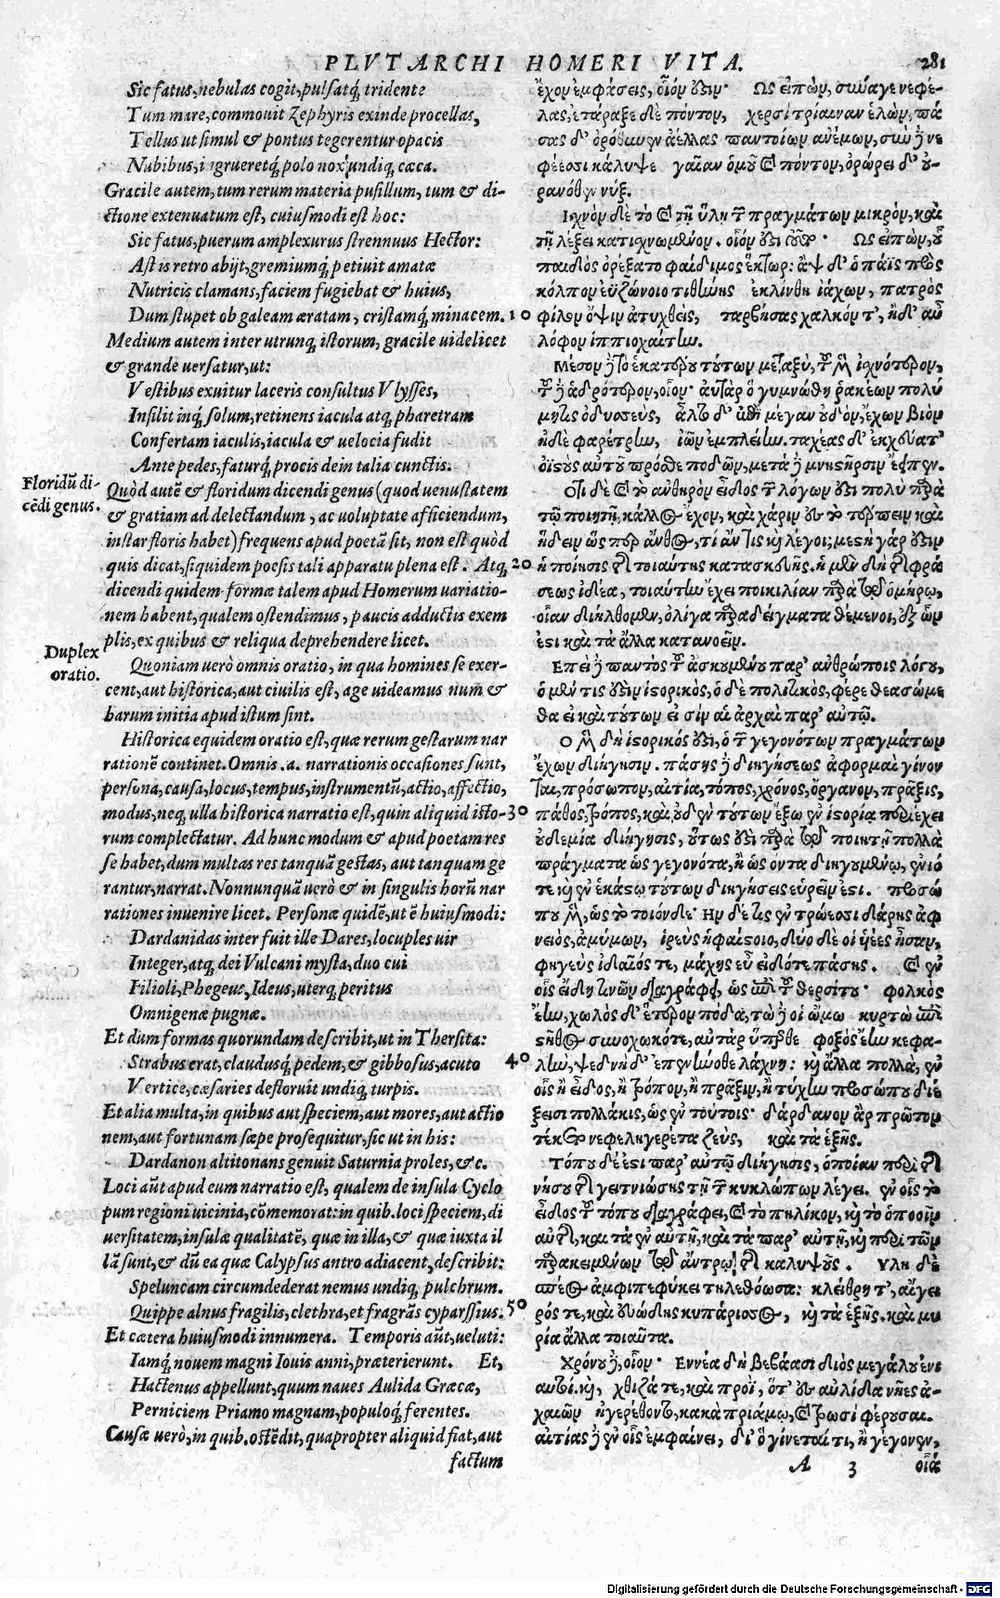 PLVTARCHI HOMERI VITA. 281
Sic fatus, nebulas cogit, pulsatq; tridente
Tum mare, commouit Zephyris exinde procellas,
Tellus ut simul & pontus tegerentur opacis
Nubibus, i grueretq; polo nox undiq; cæca.
Gracile autem, tum rerum materia pusillum, tum & di-
ctione extenuatum est, cuiusmodi est hoc:
Sic fatus, puerum amplexurus strennuus Hector:
Ast is retro abijt, gremiumq; petiuit amatæ
Nutricis clamans, faciem fugiebat & huius,
Dum stupet ob galeam æratam, cristamq; minacem. 10
Medium autem inter utrunq; istorum, gracile uidelicet
& grande uersatur, ut:
Vestibus exuitur laceris consultus Vlysses,
Insilit inq; solum, retinens iacula atq; pharetram
Confertam iaculis, iacula & uelocia fudit
Ante pedes, faturq; procis dein talia cunctis.
Floridũ di-
cẽdi genus.
Quòd autẽ & floridum dicendi genus (quod uenustatem
& gratiam ad delectandum, ac uoluptate afficiendum,
instar floris habet) frequens apud poetã sit, non est quòd
quis dicat, siquidem poesis tali apparatu plena est. Atq; 20
dicendi quidem formæ talem apud Homerum uariatio-
nem habent, qualem ostendimus, paucis adductis exem
plis, ex quibus & reliqua deprehendere licet.
Duplex
oratio.
Quoniam uerò omnis oratio, in qua homines se exer-
cent, aut historica, aut ciuilis est, age uideamus num &
harum initia apud istum sint.
Historica equidem oratio est, quæ rerum gestarum nar
rationẽ continet. Omnis .a. narrationis occasiones sunt,
persona, causa, locus, tempus, instrumentũ, actio, affectio,
modus, neq; ulla historica narratio est, quin aliquid isto- 30
rum complectatur. Ad hunc modum & apud poetam res
se habet, dum multas res tanquã gestas, aut tanquam ge
rantur, narrat. Nonnunquã uerò & in singulis horũ nar
rationes inuenire licet. Personæ quidẽ, ut ẽ huiusmodi:
Dardanidas inter fuit ille Dares, locuples uir
Integer, atq; dei Vulcani mysta, duo cui
Filioli, Phegeus, Ideus, uterq; peritus
Omnigenæ pugnæ.
Et dum formas quorundam describit, ut in Thersita:
Strabus erat, claudusq; pedem, & gibbosus, acuto 40
Vertice, cæsaries defloruit undiq; turpis.
Et alia multa, in quibus aut speciem, aut mores, aut actio
nem, aut fortunam sæpe prosequitur, sic ut in his:
Dardanon altitonans genuit Saturnia proles, &c.
Loci aũt apud eum narratio est, qualem de insula Cyclo
pum regioni uicinia, cõmemorat: in quib. loci speciem, di
uersitatem, insulæ qualitatẽ, quæ in illa, & quæ iuxta il
lã sunt, & dũ ea quæ Calypsus antro adiacent, describit:
Speluncam circumdederat nemus undiq; pulchrum.
Quippe alnus fragilis, clethra, et fragrãs cyparssius. 50
Et cætera huiusmodi innumera. Temporis aũt, ueluti:
Iamq; nouem magni Iouis anni, præterierunt. Et,
Hactenus appellunt, quum naues Aulida Græcæ,
Perniciem Priamo magnam, populoq; ferentes.
Causæ uerò, in quib. ostẽdit, quapropter aliquid fiat, aut
factum
ἔχον ἐμφάσεις, οἷόν ὅζιν· Ὣς εἰπὼν, σύναγε νεφέ-
λας, ἐτάραξε δὲ πόντον, χερσὶ τρίαιναν ἑλών, πά
σας δ' ὀρόθυνεν ἀέλλας παντοίων ἀνέμων, σὺν ἢ νε
φέεσσι κάλυψε γαῖαν ὁμοῦ καὶ πόντον, ὀρώρει δ' οὐ-
ρανόθεν νύξ.
Ἰσχνὸν δὲ τὸ καὶ τῇ ὕλῃ τῶν πραγμάτων μικρὸν, καὶ
τῇ λέξει κατισχνωμένον. οἷόν ἐστι Ὣς εἰπὼν, οὗ
παιδὸς ὀρέξατο φαίδιμος ἕκτωρ: ἂψ δ' ὁ πάϊς πρὸς
κόλπον ἐϋζώνοιο τιθήνης ἐκλίνθη ἰάχων, πατρὸς
φίλου ὄψιν ἀτυχθεὶς, ταρβήσας χαλκόν τ', ἠδὲ αὖ
λόφον ἱππιοχαίτην.
Μέσον ἑκατέρου τούτων μεταξὺ, τοῦ ἰσχνότερον,
τοῦ ἁδρότερον, οἷον· αὐτὰρ ὁ γυμνώθη ῥακέων πολύ
μητις ὀδυσσεὺς, ἆλτο δ' ἐπὶ μέγαν οὐδὸν, ἔχων βιὸν
ἠδὲ φαρέτρην, ἰῶν ἐμπλείην. ταχέας δ' ἐκχεύατ'
ὀϊστοὺς αὐτοῦ πρόσθε ποδῶν, μετὰ μνηστῆρσιν ἔειπεν.
Ὅτι δὲ καὶ τὸ ἀνθηρὸν εἶδος τῶν λόγων ἐστὶ πολὺ παρὰ
τῷ ποιητῇ, κάλλος ἔχον, καὶ χάριν εἰς τὸ τέρπειν καὶ
ἥδειν ὥσπερ ἄνθος, τί ἄν τις καὶ λέγοι; μεστὴ γάρ ἐστιν
ἡ ποίησις τῆς τοιαύτης κατασκευῆς. ἡ μὲν δὴ τῆς φρά
σεως ἰδέα, τοιαύτην ἔχει ποικιλίαν παρὰ τῷ ὁμήρῳ,
οἵαν διήλθομεν, ὀλίγα παραδείγματα θέμενοι, ἐξ ὧν
ἔστι καὶ τὰ ἄλλα κατανοεῖν.
Ἐπεὶ παντὸς τοῦ ἀσκουμένου παρ' ἀνθρώποις λόγου,
ὁ μέν τις ἐστὶν ἱστορικὸς, ὁ δὲ πολιτικὸς, φέρε θεασώμε
θα εἰ καὶ τούτων εἰσὶν αἱ ἀρχαὶ παρ' αὐτῷ.
Ὁ μὲν δὴ ἱστορικός ἐστι, ὁ τῶν γεγονότων πραγμάτων
ἔχων διήγησιν. πάσης διηγήσεως ἀφορμαὶ γίνον
ται, πρόσωπον, αἰτία, τόπος, χρόνος, ὄργανον, πρᾶξις,
πάθος, τρόπος, καὶ οὐδὲν τούτων ἔξω ἐν ἱστορίᾳ περιέχει
οὐδεμία διήγησις, οὕτως ἐστὶ παρὰ τῷ ποιητῇ πολλὰ
πράγματα ὡς γεγονότα, ἢ ὡς ὄντα διηγουμένῳ, ἐνίο
τε καὶ ἐν ἑκάστῳ τούτων διηγήσεις εὑρεῖν ἔστι. προσώ
που μὲν, ὡς τὸ τοιόνδε· Ἦν δέ τις ἐν τρώεσσι δάρης ἀφ
νειὸς, ἀμύμων, ἱρεὺς ἡφαίστοιο, δύο δέ οἱ υἱέες ἦσαν,
φηγεὺς ἰδαῖός τε, μάχης εὖ εἰδότε πάσης. καὶ ἐν
οἷς εἴδη τινῶν διαγράφει, ὡς ἐπὶ τοῦ θερσίτου· φολκὸς
ἔην, χωλὸς δ' ἕτερον πόδα, τὼ οἱ ὤμω κυρτὼ ἐπὶ
στῆθος συνοχωκότε, αὐτὰρ ὕπερθε φοξὸς ἔην κεφα-
λὴν, ψεδνὴ δ' ἐπενήνοθε λάχνη: καὶ ἄλλα πολλὰ, ἐν
οἷς ἢ εἶδος, ἢ τρόπον, ἢ πρᾶξιν, ἢ τύχην προσώπου διέ
ξεισι πολλάκις, ὡς ἐν τούτοις· δάρδανον ἂρ πρῶτον
τέκετο νεφεληγερέτα ζεὺς, καὶ τὰ ἑξῆς.
Τόπου δέ ἐστι παρ' αὐτῷ διήγησις, ὁποίαν περὶ τῆς
νήσου τῆς γειτνιώσης τῇ τῶν κυκλώπων λέγει. ἐν οἷς τὸ
εἶδος τοῦ τόπου διαγράφει, καὶ τὸ πηλίκον, καὶ τὸ ὁποῖον
αὐτῆς, καὶ τὰ ἐν αὐτῇ, καὶ τὰ παρ' αὐτῇ, καὶ περὶ τῶν
παρακειμένων τῷ ἄντρῳ τῆς καλυψοῦς. Ὕλη δὲ
σπέος ἀμφιπεφύκει τηλεθόωσα: κλέθρη τ', αἴγει
ρός τε, καὶ εὐώδης κυπάρισσος, καὶ τὰ ἑξῆς. καὶ μυ
ρία ἄλλα τοιαῦτα.
Χρόνου, οἷον· Ἐννέα δὴ βεβάασι διὸς μεγάλου ἐνι
αυτοί. καὶ, χθιζά τε, καὶ πρώϊ, ὅτ' ἐς αὐλίδα νῆες ἀ-
χαιῶν ἠγερέθοντο, κακὰ πριάμῳ, καὶ τρωσὶ φέρουσαι.
αἰτίας ἐν οἷς ἐμφαίνει, δι' ὃ γίνεταί τι, ἢ γέγονεν,
A 3 οἷά
Digitalisierung gefördert durch die Deutsche Forschungsgemeinschaft - DFG